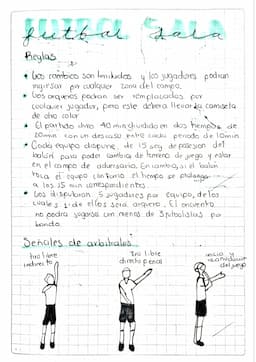 FUTBOL SALA
futbol sala
Reglas
• Los cambios son ilimitados y los jugadores podran
ingresar por cualquier zona del campo.
• Los arqueros podran ser remplazados por
cualquier jugador, pero este debera llevar la camiseta
de otro color
• El partido dura 40 min dividido en dos tiempos de
20min con un descaso entre cada periodo de 10min
• Cada equipo dispone de 15 seg de posesion del
balon para poder cambia de terreno de juego y estar
en el campo de adversario. En cambio, si el balon
toca el equipo contrario el tiempo se prolonga
a los 15 min correspondientes.
• Los disputaron 5 jugadores por equipo, de los
cuales 1 de ellos sera arquero. El encuentro
no podra jugarse con menos de 3 futbolistas por
bando.
Señales de arbitrales
tiro libre
indirecto
tiro libre
directo penal
inicio y
reanudacion
del juego